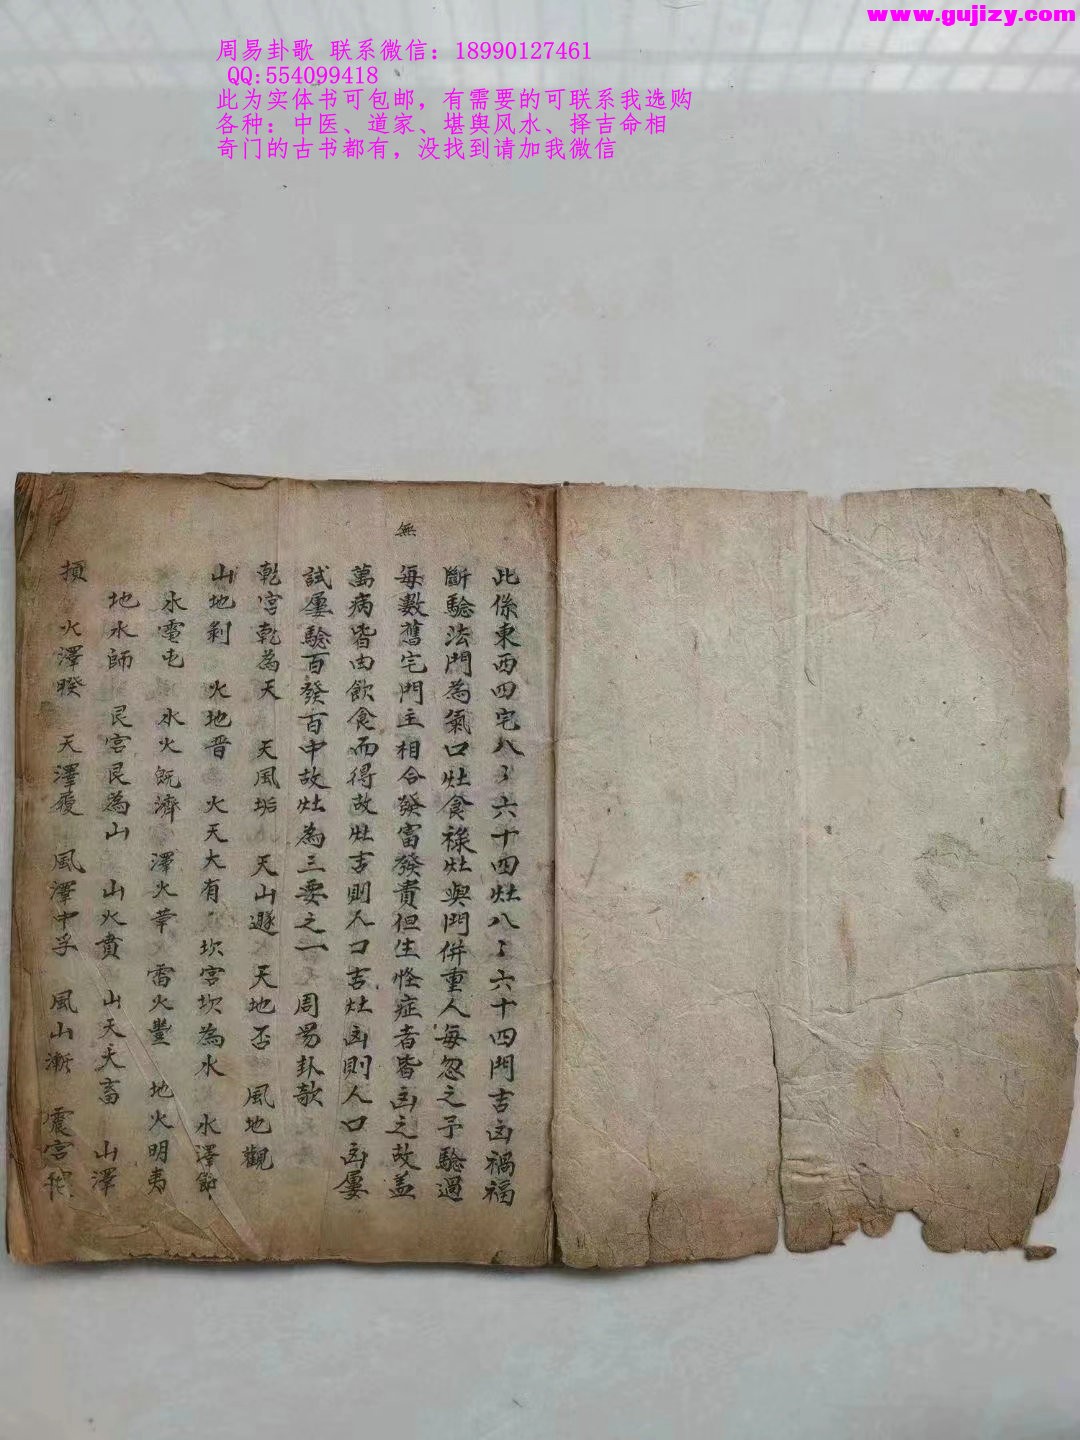 www.gujizy.com
周易卦歌 联系微信：18990127461
QQ:554099418
此为实体书可包邮，有需要的可联系我选购
各种：中医、道家、堪舆风水、择吉命相
奇门的古书都有，没找到请加我微信
此係東西四宅八〻六十四灶八〻六十四門吉凶禍福
斷驗法門為氣口灶食祿灶與門併重人每忽之予驗過
無
每數舊宅門主相合發富發貴但生怪症者皆凶之故盖
萬病皆由飲食而得故灶吉則人口吉灶凶則人口凶屢
試屢驗百發百中故灶為三要之一 周易卦歌
乾宮乾為天 天風垢 天山遯 天地否 風地觀
山地剥 火地晋 火天大有 坎宮坎為水 水澤節
水電屯 水火既濟 澤火革 雷火豐 地火明夷
地水師 艮宮艮為山 山火賁 山天大畜 山澤
損 火澤暌 天澤履 風澤中孚 風山漸 震宮